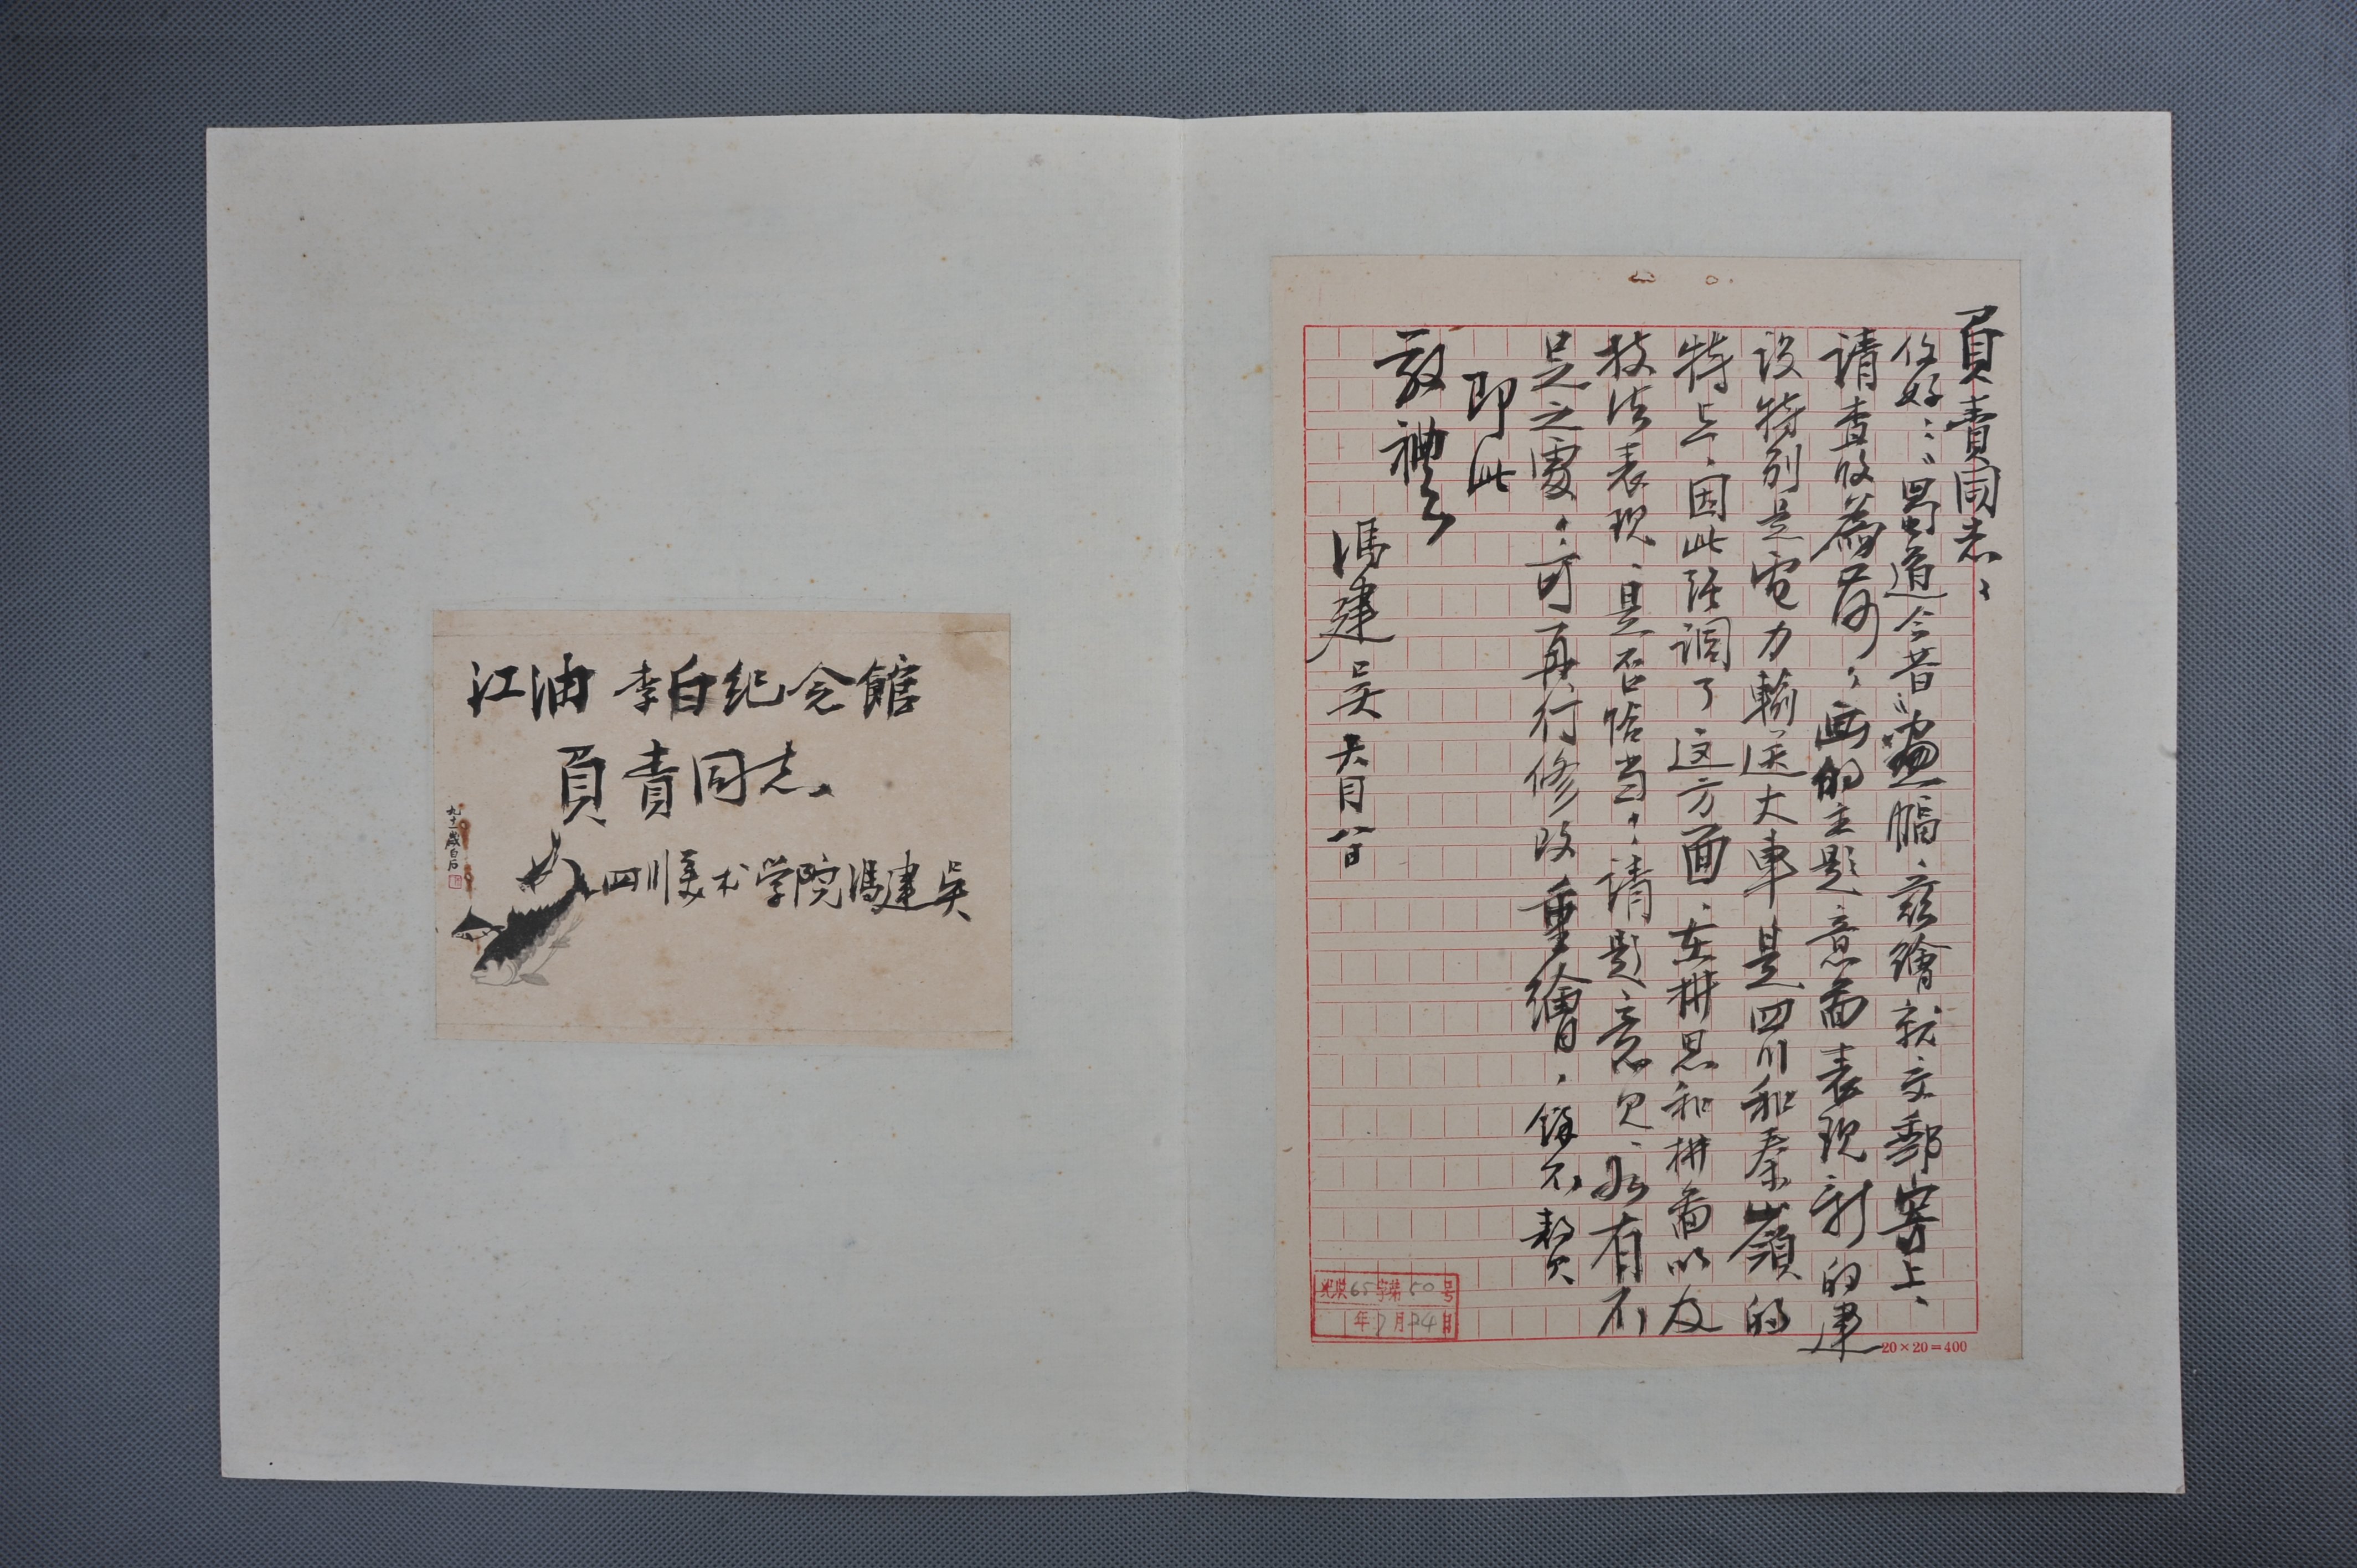 負責同志、
你好:：“蜀道今昔”画一幅、兹繪就交郵寄上、
請查收為荷；画的主题意图表现新的建
设特别是電力輸送大車是四川和秦嶺的
特点、因此强調了这方面、在构思和构图以及
技法表现、是否恰当，請题意见、如有不
足之處，可再行修改重繪，餘不赘
即此
敬禮
馮建吴 六月廿日
20×20=400
65字第50号
年7月24日
江油 李白纪念館
負責同志
四川美术学院馮建吴
九十一歲白石